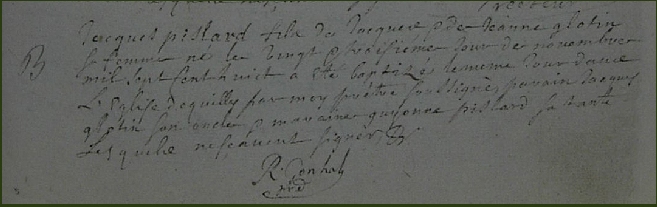 B
Jacques pistard fils de Jacques & de Jeanne glotin
sa femme né le vingt & troisieme jour de novembre
mil sept cent & huict a été baptizé le meme jour dans
L'Eglise d'equilly par moy prêtre soussigné, parain Jacques
glotin son oncle & maraine guyonne pistard sa tante
Lesquels ne sçavent signer &
R.